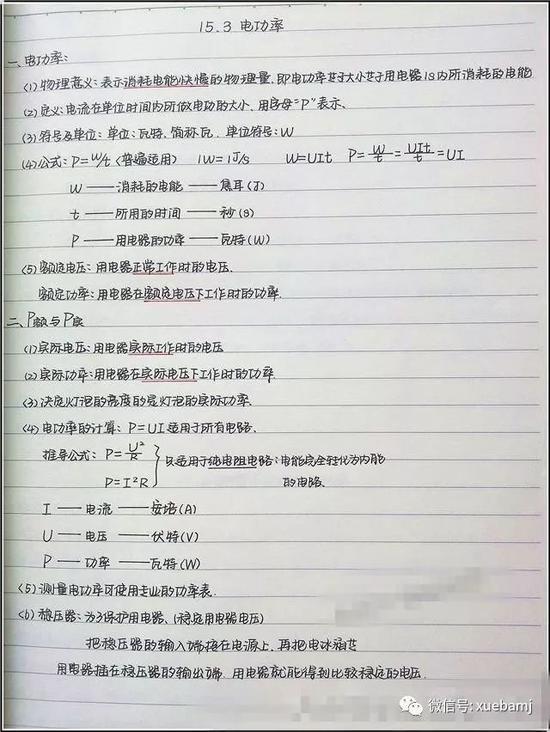 15.3 电功率
一、电功率：
(1) 物理意义：表示消耗电能快慢的物理量，即电功率大小等于用电器1s内所消耗的电能
(2) 定义：电流在单位时间内所做电功的大小，用字母"P"表示、
(3) 符号及单位：单位：瓦特，简称瓦．单位符号：W
(4) 公式：P=W/t (普遍适用) 1W=1J/s W=UIt P=W/t=UIt/t=UI
W —— 消耗的电能 —— 焦耳(J)
t —— 所用的时间 —— 秒(s)
P —— 用电器的功率 —— 瓦特(W)
(5) 额定电压：用电器正常工作时的电压．
额定功率：用电器在额定电压下工作时的功率．
二、P额与P实
(1) 实际电压：用电器实际工作时的电压
(2) 实际功率：用电器在实际电压下工作时的功率．
(3) 决定灯泡的亮度的是灯泡的实际功率．
(4) 电功率的计算：P=UI 适用于所有电路、
推导公式：P=U²/R
P=I²R
只适用于纯电阻电路：电能完全转化为内能
的电路、
I —— 电流 —— 安培(A)
U —— 电压 —— 伏特(V)
P —— 功率 —— 瓦特(W)
(5) 测量电功率可使用专业的功率表．
(6) 稳压器：为了保护用电器、(稳定用电器电压)
把稳压器的输入端接在电源上，再把电冰箱等
用电器插在稳压器的输出端．用电器就能得到比较稳定的电压．
微信号: xuebamj